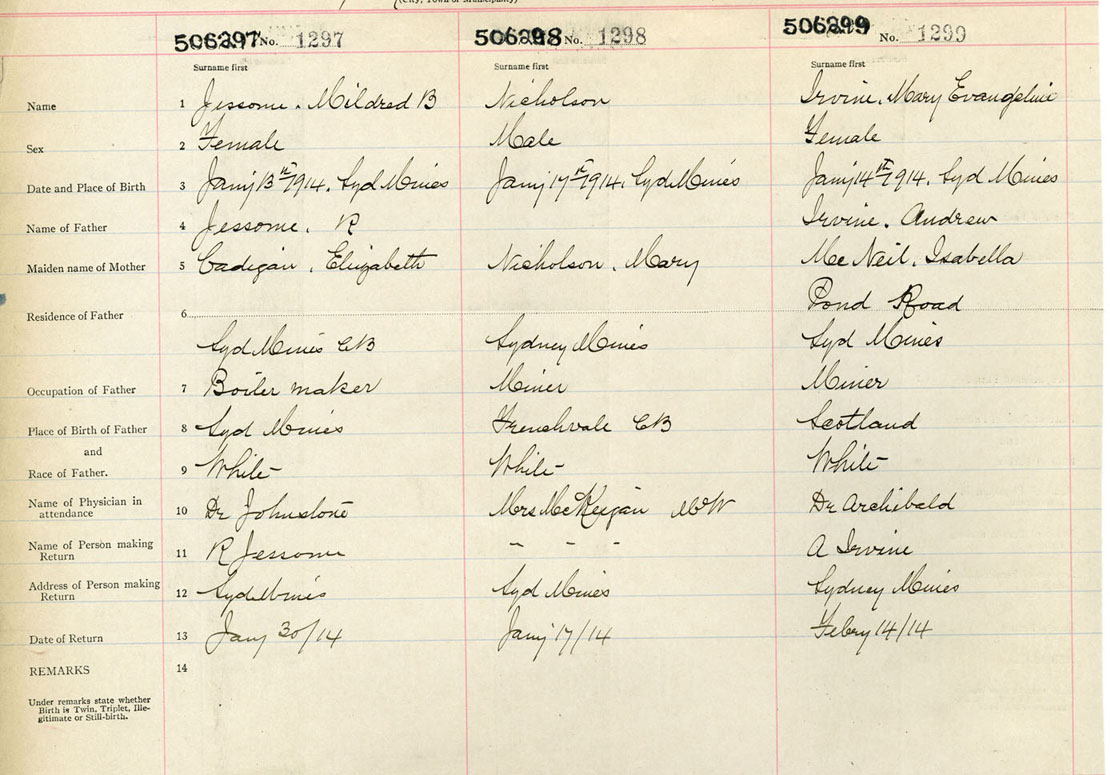 (City, Town or Municipality)
506297 No. 1297 506298 No. 1298 506299 No. 1299
Surname first Surname first Surname first
Name 1 Jessome, Mildred B Nicholson Irvine, Mary Evangeline
Sex 2 Female Male Female
Date and Place of Birth 3 Jany 13th 1914, Syd Mines Jany 17th 1914, Syd Mines Jany 14th 1914, Syd Mines
Name of Father 4 Jessome, R Irvine, Andrew
Maiden name of Mother 5 Cadigan, Elizabeth Nicholson, Mary McNeil, Isabella
Residence of Father 6 Pond Road
Syd Mines CB Sydney Mines Syd Mines
Occupation of Father 7 Boiler maker Miner Miner
Place of Birth of Father 8 Syd Mines Frenchvale CB Scotland
and
Race of Father. 9 White White White
Name of Physician in
attendance 10 Dr Johnstone Mrs McKeigan MW Dr Archibald
Name of Person making
Return 11 R Jessome - - - A Irvine
Address of Person making
Return 12 Syd Mines Syd Mines Sydney Mines
Date of Return 13 Jany 30/14 Jany 17/14 Febry 14/14
REMARKS 14
Under remarks state whether
Birth is Twin, Triplet, Ille-
gitimate or Still-birth.